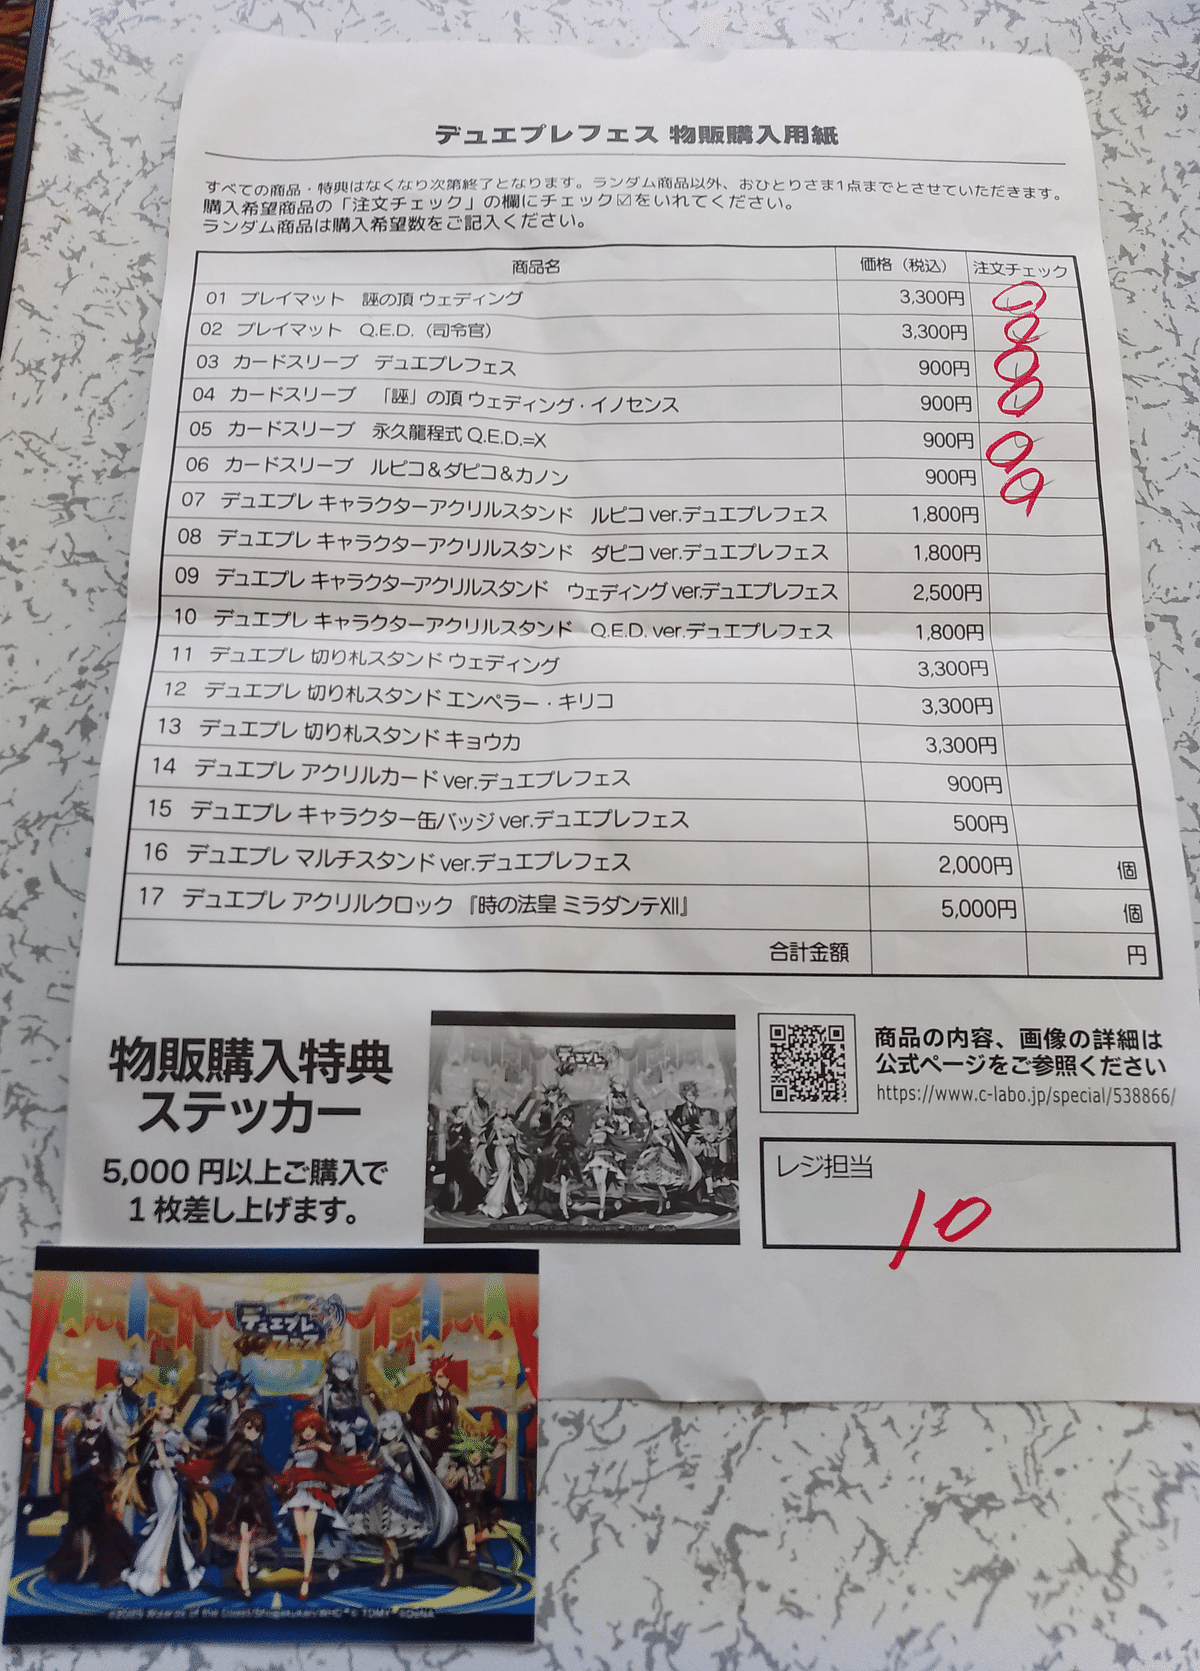 デュエプレフェス 物販購入用紙
すべての商品・特典はなくなり次第終了となります。ランダム商品以外、おひとりさま1点までとさせていただきます。
購入希望商品の「注文チェック」の欄にチェック☑をいれてください。
ランダム商品は購入希望数をご記入ください。
商品名 価格（税込） 注文チェック
01 プレイマット 誣の頂 ウェディング 3,300円
02 プレイマット Q.E.D.（司令官） 3,300円
03 カードスリーブ デュエプレフェス 900円
04 カードスリーブ 「誣」の頂 ウェディング・イノセンス 900円
05 カードスリーブ 永久龍程式 Q.E.D.=X 900円
06 カードスリーブ ルピコ＆ダピコ＆カノン 900円
07 デュエプレ キャラクターアクリルスタンド ルピコ ver.デュエプレフェス 1,800円
08 デュエプレ キャラクターアクリルスタンド ダピコ ver.デュエプレフェス 1,800円
09 デュエプレ キャラクターアクリルスタンド ウェディング ver.デュエプレフェス 2,500円
10 デュエプレ キャラクターアクリルスタンド Q.E.D. ver.デュエプレフェス 1,800円
11 デュエプレ 切り札スタンド ウェディング 3,300円
12 デュエプレ 切り札スタンド エンペラー・キリコ 3,300円
13 デュエプレ 切り札スタンド キョウカ 3,300円
14 デュエプレ アクリルカード ver.デュエプレフェス 900円
15 デュエプレ キャラクター缶バッジ ver.デュエプレフェス 500円
16 デュエプレ マルチスタンド ver.デュエプレフェス 2,000円 個
17 デュエプレ アクリルクロック 『時の法皇 ミラダンテXII』 5,000円 個
合計金額 円
物販購入特典
ステッカー
5,000 円以上ご購入で
1 枚差し上げます。
デュエプレ
フェス
商品の内容、画像の詳細は
公式ページをご参照ください
https://www.c-labo.jp/special/538866/
レジ担当
10
デュエプレ
フェス